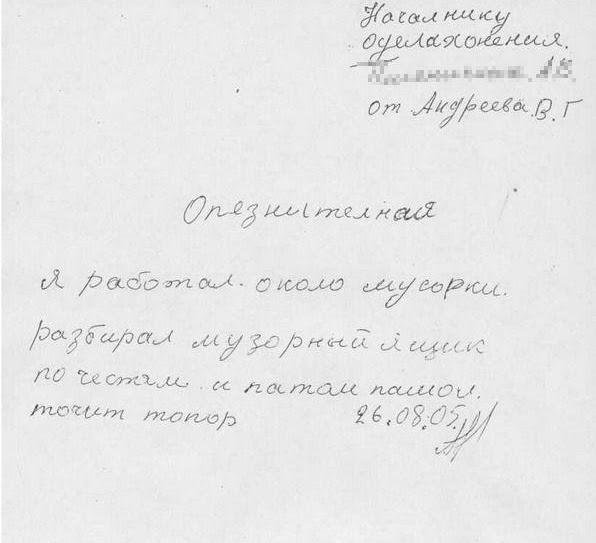 Началнику
оделахонения.
А.В.
от Андреева.В.Г
Опязнителная
я работал. около мусорки.
разбирал музорный ящик
по честям. и патом пашол.
точит топор 26.08.05.